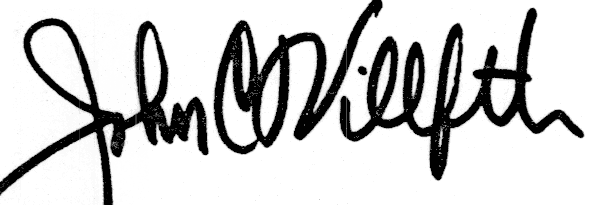 John C Villforth